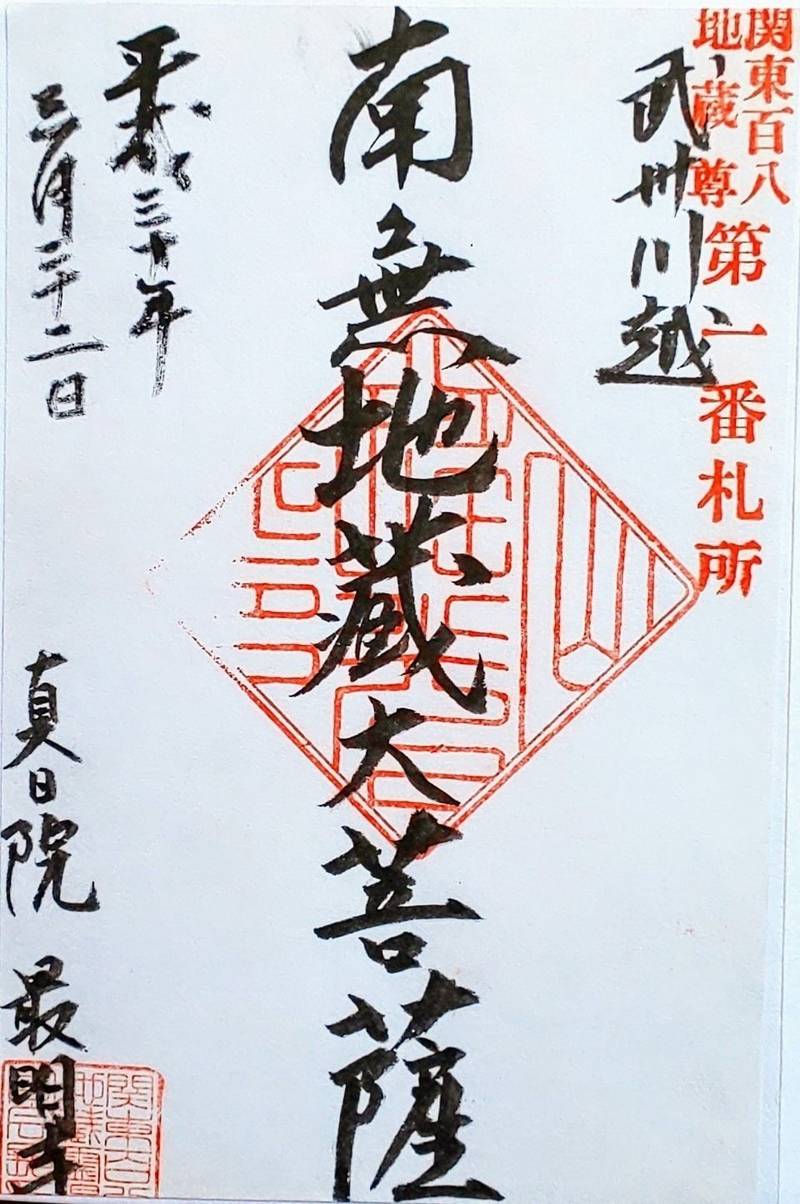 関東百八
地蔵尊
第一番札所
武州川越
南無地蔵大菩薩
平成三十年
三月二十二日
真日院 最明寺